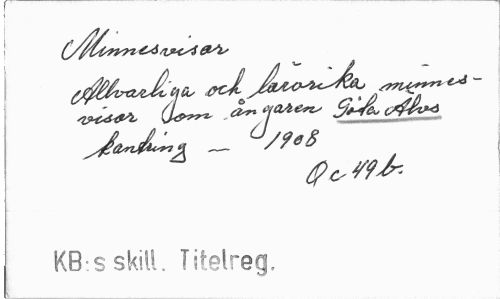 Minnesvisor
Allvarliga och lärorika minnes-
visor om ångaren Göta Älvs
kantring — 1908
Oc 49 b.
KB:s skill. Titelreg.